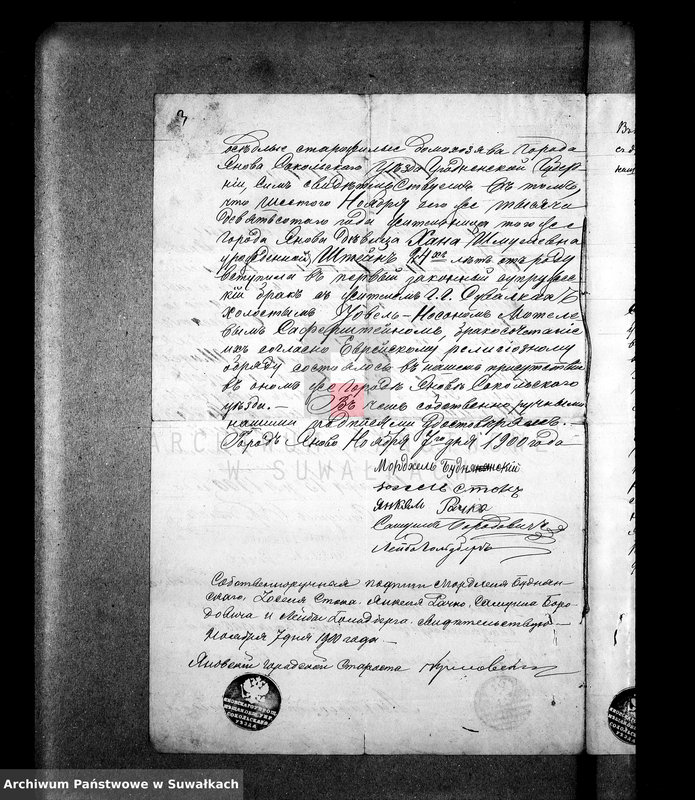 3
осѣдлые старожилые домохозяева города
Янова Сокольского уѣзда Гродненской Губер-
ніи, симъ свидѣтельствуемъ въ томъ,
что шестого Ноября сего же тысяча
девятьсотаго года жительница того же
города Янова дѣвица Хана Шмулевна
урожденная Штейнъ 24хъ лѣтъ отъ роду
вступила въ первый законный супружес-
кій бракъ съ жителемъ г. Сувалки
холостымъ Іовель-Носаномъ Мотеле-
вымъ Саферштейномъ, бракосочетаніе
ихъ согласно Еврейскому религіозному
обряду состоялось въ нашемъ присутствіи
въ ономъ же городѣ Яновѣ Сокольского
уѣзда. — Въ чемъ собственноручными
нашими подписями удостовѣряемъ.
Городъ Яновъ Ноября 7го дня 1900 года
Мордхель Буднянскій
Іоселъ Стонъ
Янкель Рачко
Самуилъ Бородовичъ
Лейба Гольдбергъ
Собственноручная подписи Мордхеля Буднян-
скаго, Іоселя Стона, Янкеля Рачко, Самуила Боро-
довича и Лейбы Гольдберга свидѣтельствую —
Ноября 7 дня 1900 года —
Яновскій Городской Староста
ARCHIWUM
W SUWAŁKACH
Archiwum Państwowe w Suwałkach